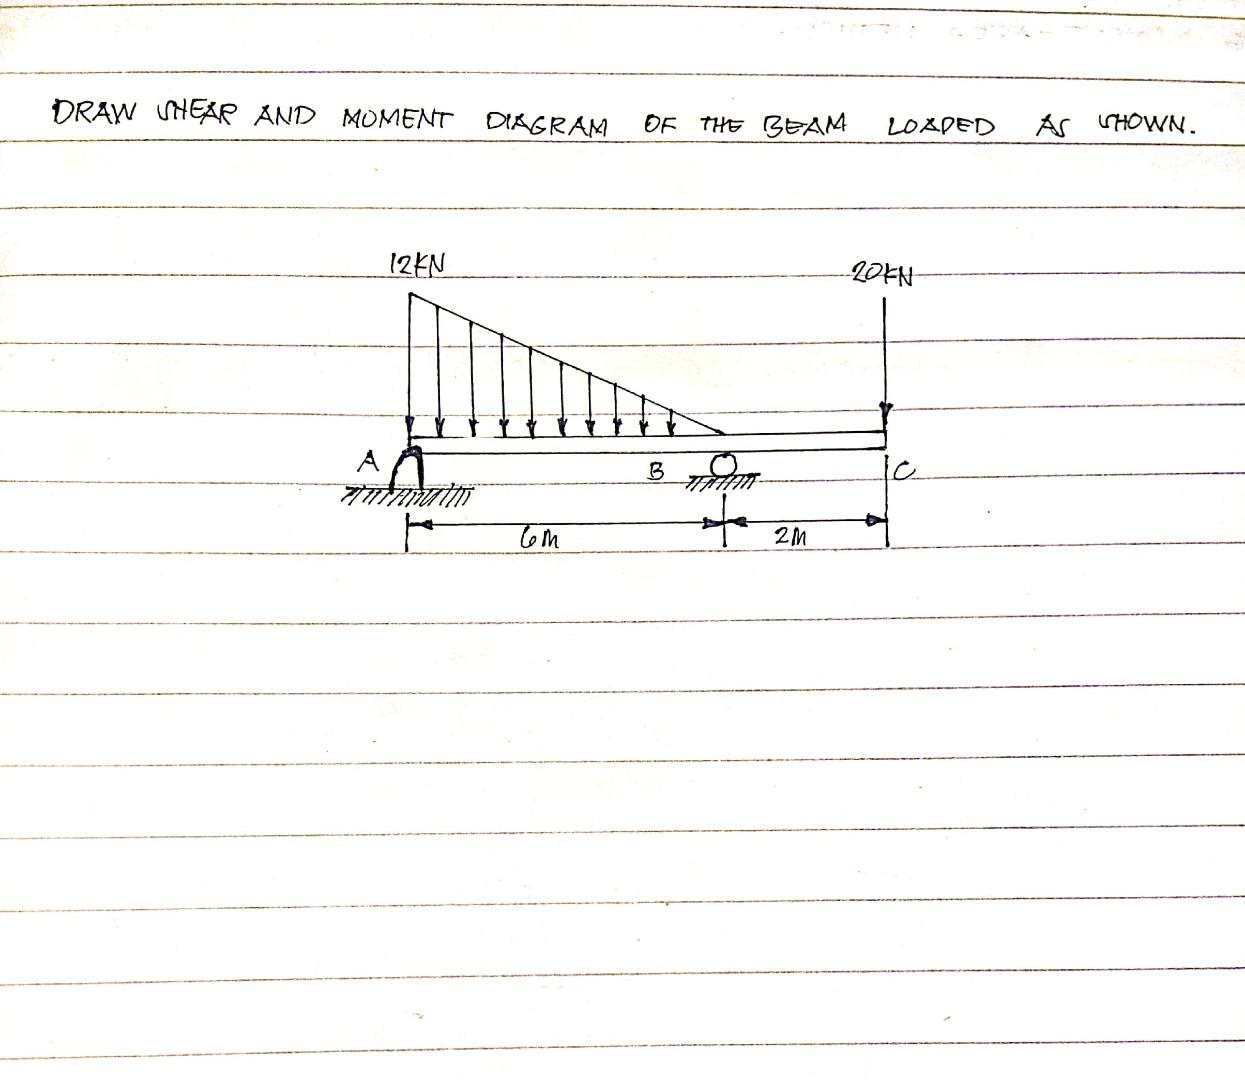 DRAW SHEAR AND MOMENT DIAGRAM OF THE BEAM LOADED AS SHOWN.
12KN
20KN
A
B
C
6M
2M